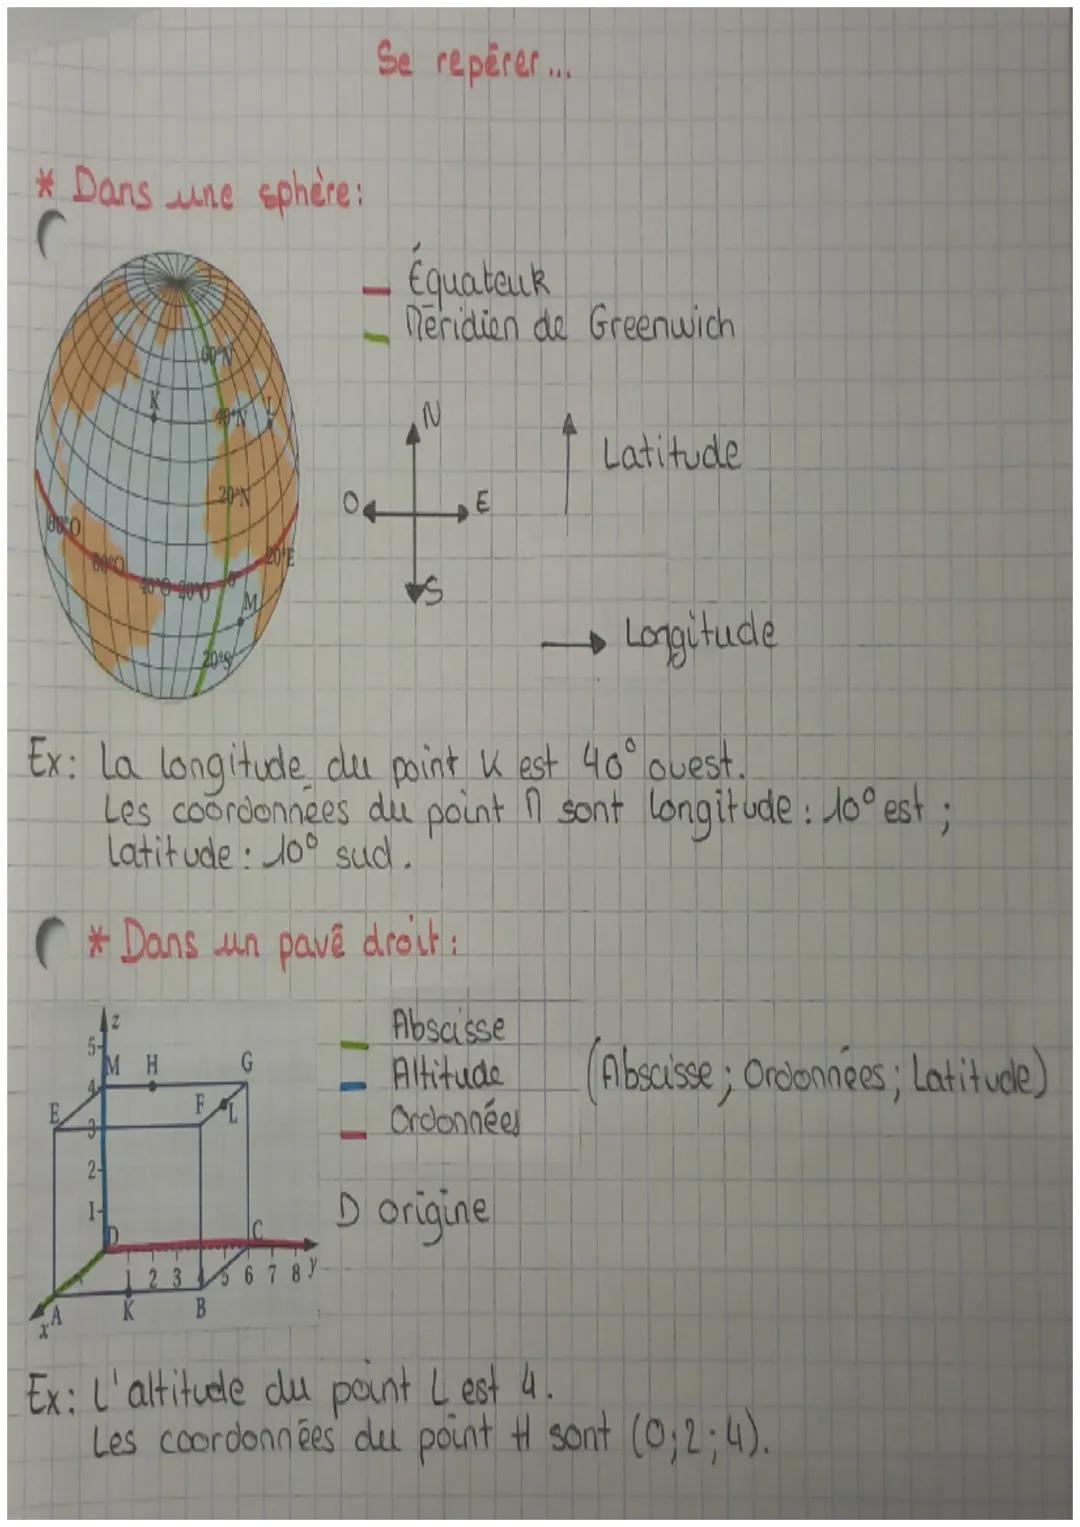 Se repérer...
* Dans une sphère:
Équateur
Méridien de Greenwich
60°N
K
40°N
L
20°N
80°O
60°O
40°O
20°O
0°
20°E
M
20°S
N
O
E
S
Latitude
Longitude
Ex: La longitude du point K est 40° ouest.
Les coordonnées du point M sont longitude: 10° est;
Latitude: 10° sud.
* Dans un pavé droit:
Abscisse
Altitude
Ordonnées
(Abscisse; Ordonnées; Latitude)
D origine
z
5
M H G
4
E F L
3
2
1
D C
1 2 3 4 5 6 7 8 y
A K B
x
Ex: L'altitude du point L est 4.
Les coordonnées du point H sont (0;2;4).